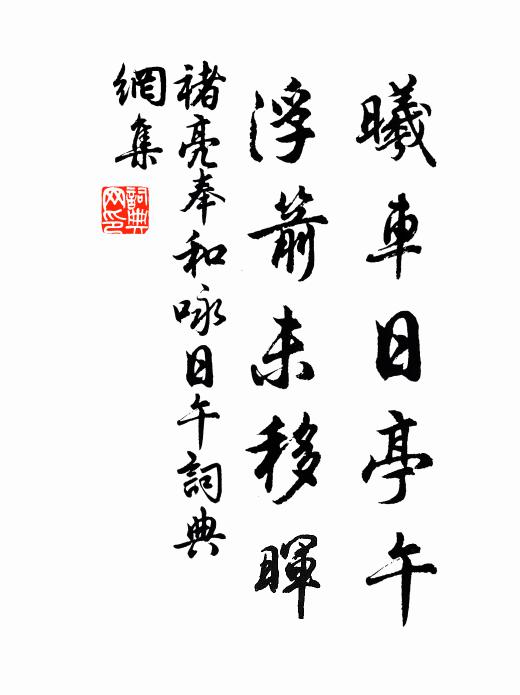 曦車日亭午
浮箭未移暉
褚亮奉和咏日午詞典
網集
詞典網印